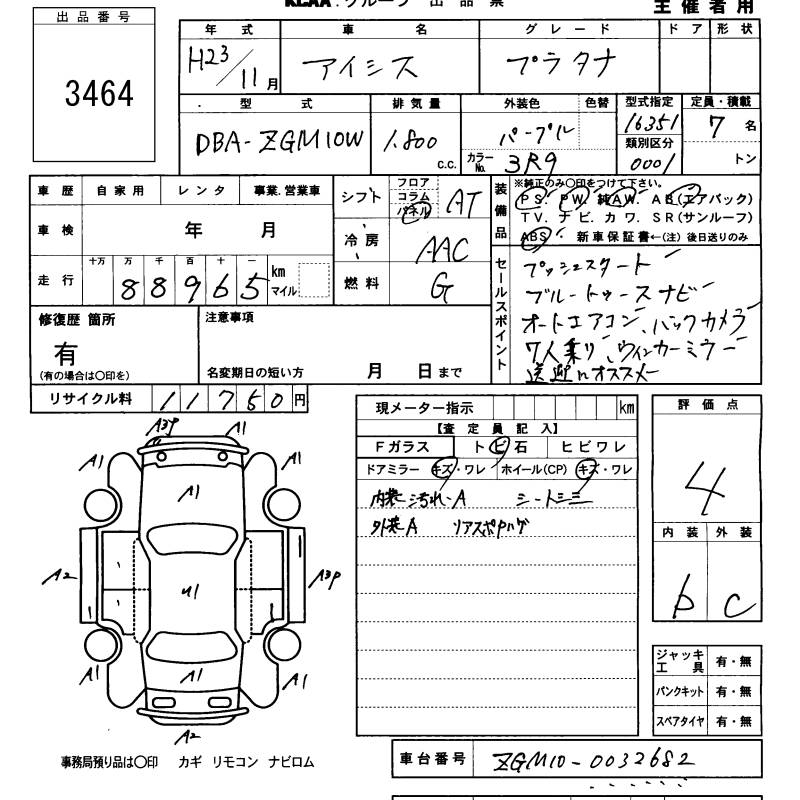 KCAA.グループ 出品票
主催者用
出品番号
3464
年式 車名 グレード ドア 形状
H23/11月 アイシス プラタナ
型式 排気量 外装色 色替 型式指定 定員・積載
DBA-ZGM10W 1.800 c.c. パープル 16351 7名
カラーNo. 3R9 類別区分 0001 トン
車歴 自家用 レンタ 事業.営業車
車検 年 月
走行 十万 万 千 百 十 一
88965 km マイル
シフト フロア コラム パネル AT
冷房 AAC
燃料 G
装備品 ※純正のみ〇印をつけて下さい。
PS. PW. 純AW. AB(エアバック)
TV. ナビ. カワ. SR(サンルーフ)
ABS. 新車保証書←(注)後日送りのみ
セールスポイント
プッシュスタート
ブルートゥースナビ
オートエアコン、バックカメラ
7人乗り、ウィンカーミラー
送迎にオススメー
修復歴 箇所
有
(有の場合は〇印を)
注意事項
名変期日の短い方 月 日まで
リサイクル料 11750円
現メーター指示 km
【査定員記入】
Fガラス トビ石 ヒビワレ
ドアミラー キズ・ワレ ホイール(CP) キズ・ワレ
内装 汚れ-A シートシミ
外装A リアスポPハゲ
評価点
4
内装 外装
b C
A3P A1
A1 A1
A1
A2 U1 A3P
A1 A1 A1
A2
ジャッキ工具 有・無
パンクキット 有・無
スペアタイヤ 有・無
事務局預り品は〇印 カギ リモコン ナビロム
車台番号 ZGM10-0032682